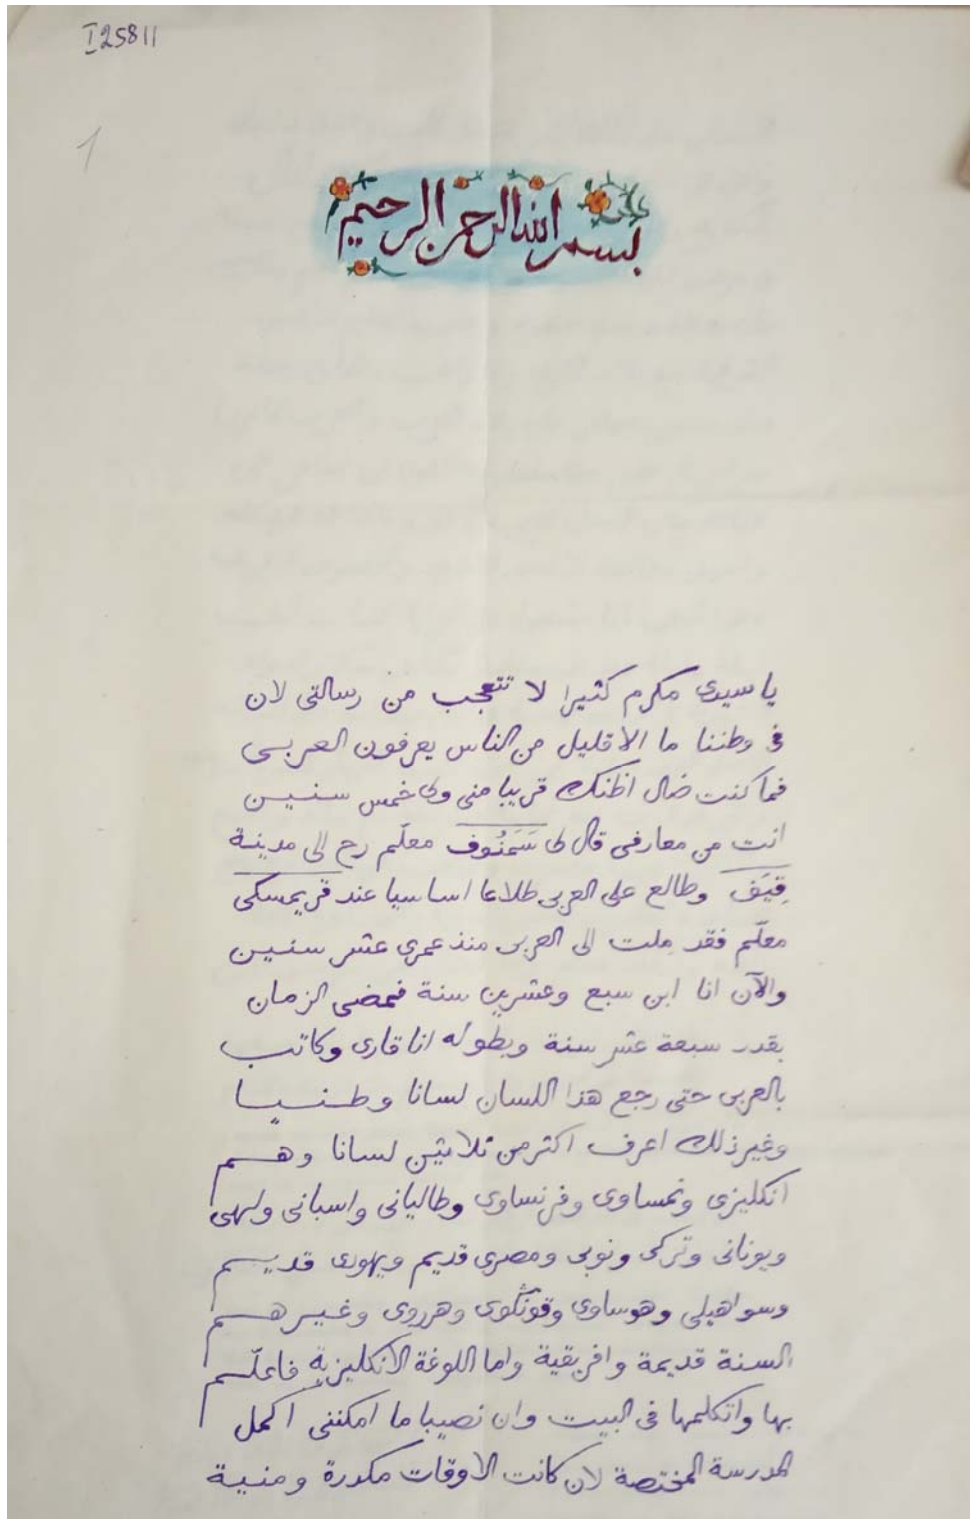 I 25811
1
بسم الله الرحمن الرحيم
يا سيدى مكرم كثيرا لا تتعجب من رسالتى لان
فى وطننا ما الا قليل من الناس يعرفون العربى
فما كنت ضال اظنك قريبا منى ولى خمس سنين
انت من معارفى قال لى سَمَنُوف معلّم رح الى مدينة
قِيَف وطالع على العربى طلاعا اساسيا عند قريمسكى
معلّم فقد مِلت الى العربى منذ عمرى عشر سنين
والآن انا ابن سبع وعشرين سنة فمضى الزمان
بقدر سبعة عشر سنة وبطوله انا قارى وكاتب
بالعربى حتى رجع هذا اللسان لسانا وطنيا
وغير ذلك اعرف اكثر من ثلاثين لسانا وهم
انكليزى ونمساوى وفرنساوى وطاليانى واسبانى ولهى
ويونانى وتركى ونوبى ومصرى قديم ويهودى قديم
وسواهيلى وهوساوى وهرروى وغيرهم
السنة قديمة وافريقية واما اللوغة الانكليزية فاعلّم
بها واتكلمها فى البيت وان نصيبا ما امكننى اكمل
المدرسة المختصة لان كانت الاوقات مكدرة ومنية